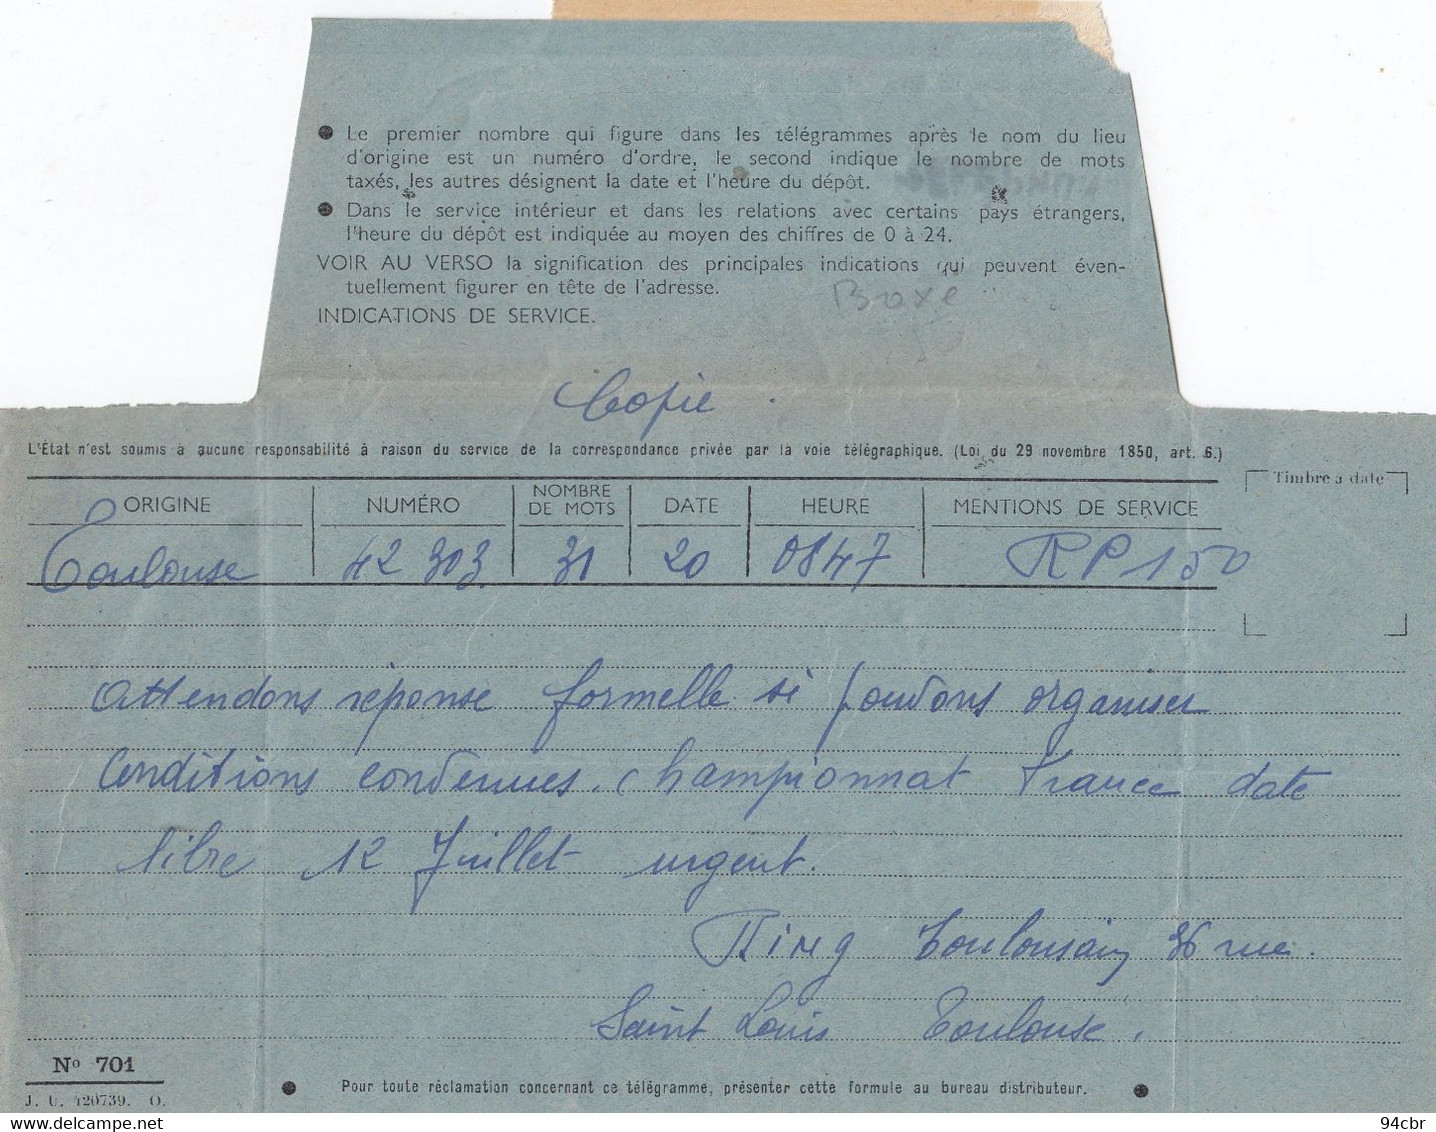 ● Le premier nombre qui figure dans les télégrammes après le nom du lieu
d'origine est un numéro d'ordre, le second indique le nombre de mots
taxés, les autres désignent la date et l'heure du dépôt.
● Dans le service intérieur et dans les relations avec certains pays étrangers,
l'heure du dépôt est indiquée au moyen des chiffres de 0 à 24.
VOIR AU VERSO la signification des principales indications qui peuvent éven-
tuellement figurer en tête de l'adresse.
Boxe
INDICATIONS DE SERVICE.
Copie
L'État n'est soumis à aucune responsabilité à raison du service de la correspondance privée par la voie télégraphique. (Loi du 29 novembre 1850, art. 6.)
Timbre à date
ORIGINE NUMÉRO NOMBRE DE MOTS DATE HEURE MENTIONS DE SERVICE
Toulouse 42 303 31 20 0847 RP 150
Attendons réponse formelle si pouvons organiser
Conditions convenues. Championnat France date
libre 12 Juillet urgent.
Ring Toulousain 36 rue.
Saint Louis Toulouse.
Nº 701
J. U. 420739. O.
● Pour toute réclamation concernant ce télégramme, présenter cette formule au bureau distributeur. ●
94cbr